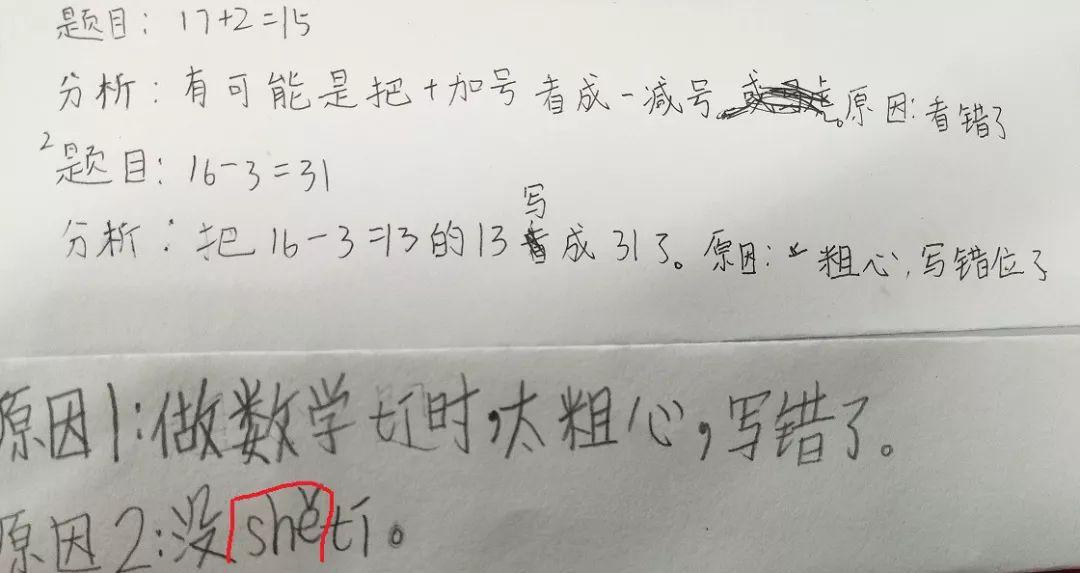 题目：17+2=15
分析：有可能是把+加号看成-减号。原因：看错了
2题目：16-3=31
分析：把16-3=13的13写成31了。原因：粗心，写错位了
原因1：做数学tí时，太粗心，写错了。
原因2：没shětí。